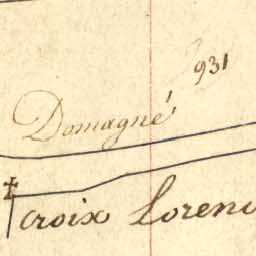 931
Domagné
croix Loren